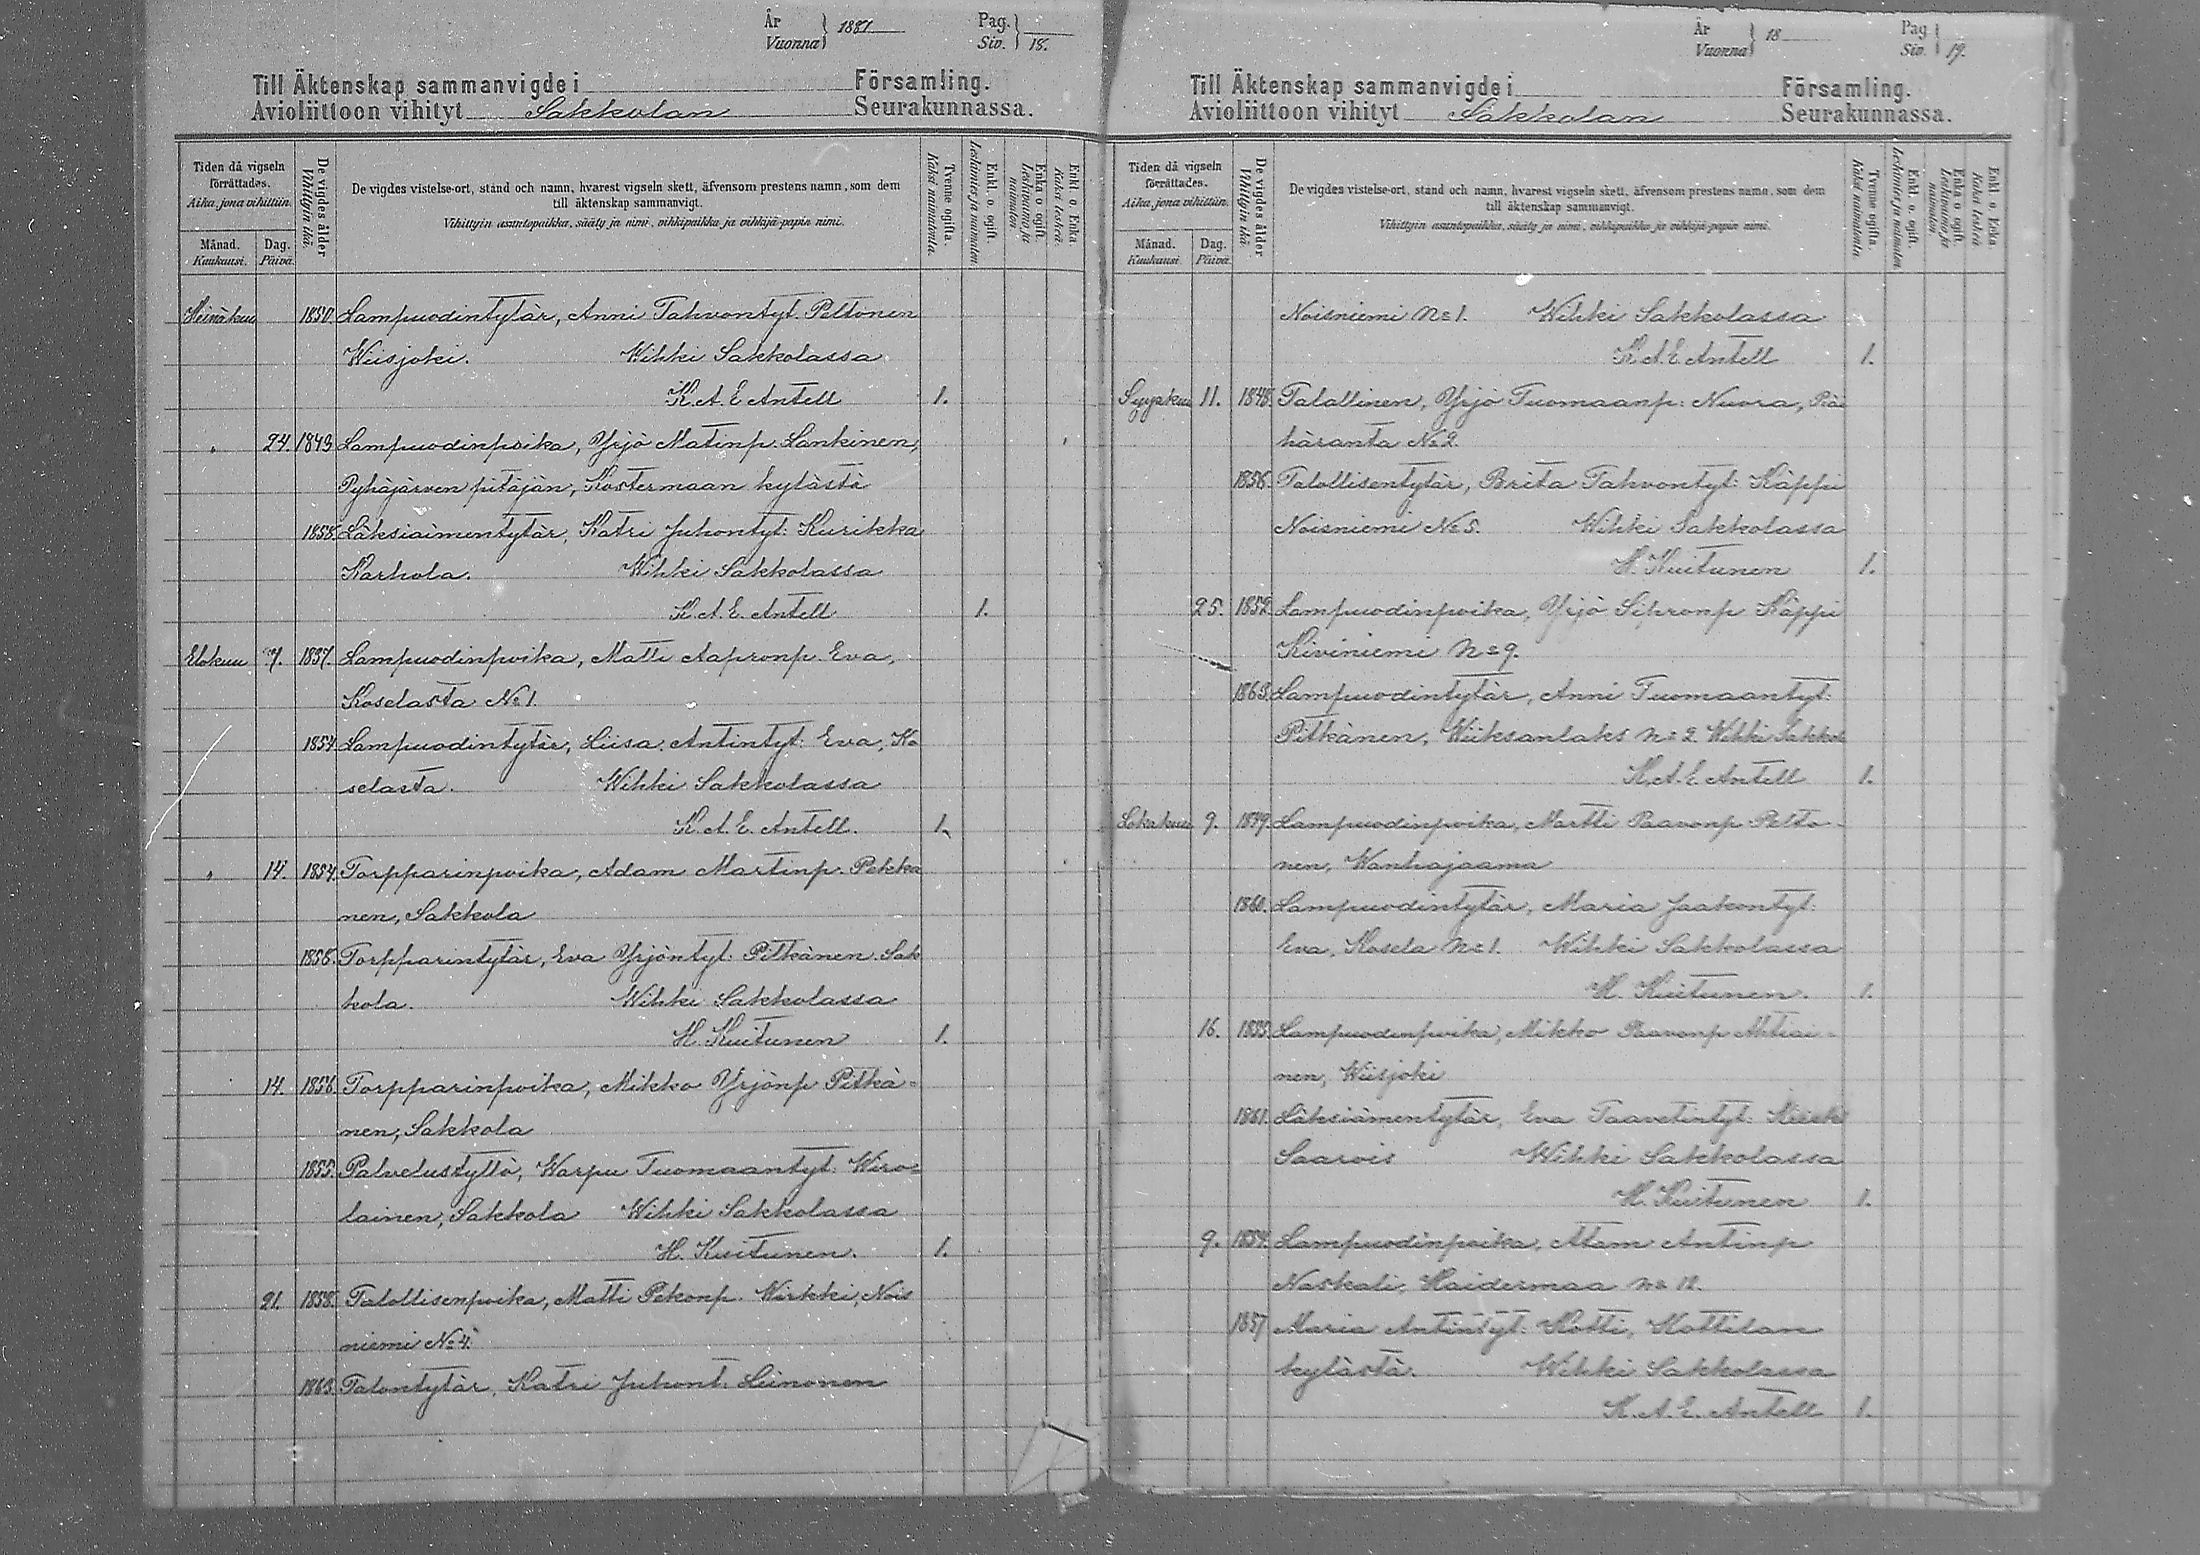 År
Vuonna } 1881
Pag.
Siv. } 18.
Till Äktenskap sammanvigde i Församling.
Avioliittoon vihityt Sakkolan Seurakunnassa.
Tiden då vigseln förrättades.
Aika, jona vihittiin.
Månad.
Kuukausi.
Dag.
Päivä.
De vigdes ålder
Vihittyin ikä.
De vigdes vistelse-ort, stånd och namn, hvarest vigseln skett, äfvensom prestens namn, som dem
till äktenskap sammanvigt.
Vihittyin asuntopaikka, sääty ja nimi, vihkipaikka ja vihkijä-papin nimi.
Tvenne ogifta.
Kaksi naimatonta.
Enkl. o. ogift.
Leskimies ja naimaton.
Enka o. ogift.
Leskivaimo ja naimaton.
Enkl. o. Enka
Kaksi leskeä.
Heinäkuu 1850. Lampuodintytär, Anni Tahvontyt. Peltonen
Wiisjoki. Wihki Sakkolassa
K. A. E Antell 1.
" 24. 1843 Lampuodinpoika, Yrjö Matinp. Lankinen,
Pyhäjärven pitäjän, Kostermaan kylästä
1858. Läksiäimentytär, Katri Juhontyt: Kurikka
Karhola. Wihki Sakkolassa
K. A. E. Antell 1.
Elokuu 7. 1857. Lampuodinpoika, Matti Aapronp. Eva,
Koselasta No 1.
1854. Lampuodintytär, Liisa, Antintyt: Eva, Ko
selasta. Wihki Sakkolassa
K. A. E. Antell. 1.
" 14. 1854. Torpparinpoika, Adam Martinp. Pekka
nen, Sakkola
1858. Torpparintytär, Eva Yrjöntyt: Pitkänen Sak
kola. Wihki Sakkolassa
H. Kuitunen 1.
14. 1856. Torpparinpoika, Mikko Yrjönp Pitkä=
nen, Sakkola
1855. Palvelustyttö, Warpu Tuomaantyt: Wiro=
lainen, Sakkola Wihki Sakkolassa
H. Kuitunen. 1.
21. 1858. Talollisenpoika, Matti Pekonp. Wirkki, Nois
niemi No 4.
1863. Talontytär, Katri Juhont. Liinonen
År
Vuonna } 18
Pag
Siv. } 19.
Till Äktenskap sammanvigde i Församling.
Avioliittoon vihityt Sakkolan Seurakunnassa.
Tiden då vigseln förrättades.
Aika, jona vihittiin.
Månad.
Kuukausi.
Dag.
Päivä.
De vigdes ålder
Vihittyin ikä.
De vigdes vistelse-ort, stånd och namn, hvarest vigseln skett, äfvensom prestens namn, som dem
till äktenskap sammanvigt.
Vihittyin asuntopaikka, sääty ja nimi, vihkipaikka ja vihkijä-papin nimi.
Tvenne ogifta.
Kaksi naimatonta.
Enkl. o. ogift.
Leskimies ja naimaton.
Enka o. ogift.
Leskivaimo ja naimaton
Enkl. o. Enka
Kaksi leskeä.
Noisniemi No 1. Wihki Sakkolassa
K. A. E. Antell 1.
Syyskuu 11. 1848. Talallinen, Yrjö Tuomaanp: Nuora,
häranta No 2.
1856. Talollisentytär, Brita Tahvontyt: Käppi
Noisniemi No 5. Wihki Sakkolassa
H. Kuitunen 1.
25. 1852. Lampuodinpoika, Yrjö Sipronp Käppi
Kiviniemi No 9.
1863. Lampuodintytär, Anni Tuomaantyt:
Pitkänen, Wiiksanlaks No 2 Wihki Sakkol
K. A. E Antell 1.
Lokakuu 9. 1859. Lampuodinpoika, Martti Paavonp Pelto-
nen, Wanhajaama
1860. Lampuodintytär, Maria Jaakontyt:
Eva, Kosela No 1. Wihki Sakkolassa
H. Kuitunen. 1.
16. 1855. Lampuodinpoika, Mikko Paavonp Ahtiai-
nen, Wiisjoki
1861. Läksiäimentytär, Eva Taavetintyt: Kiiski
Saarois Wihki Sakkolassa
H. Kuitunen 1.
9. 1854. Lampuodinpoika, Atam Antinp
Naskali, Haidermaa No 12.
1857 Maria Antintyt: Hotti, Hattilan
kylästä. Wihki Sakkolassa
K. A. E. Antell 1.